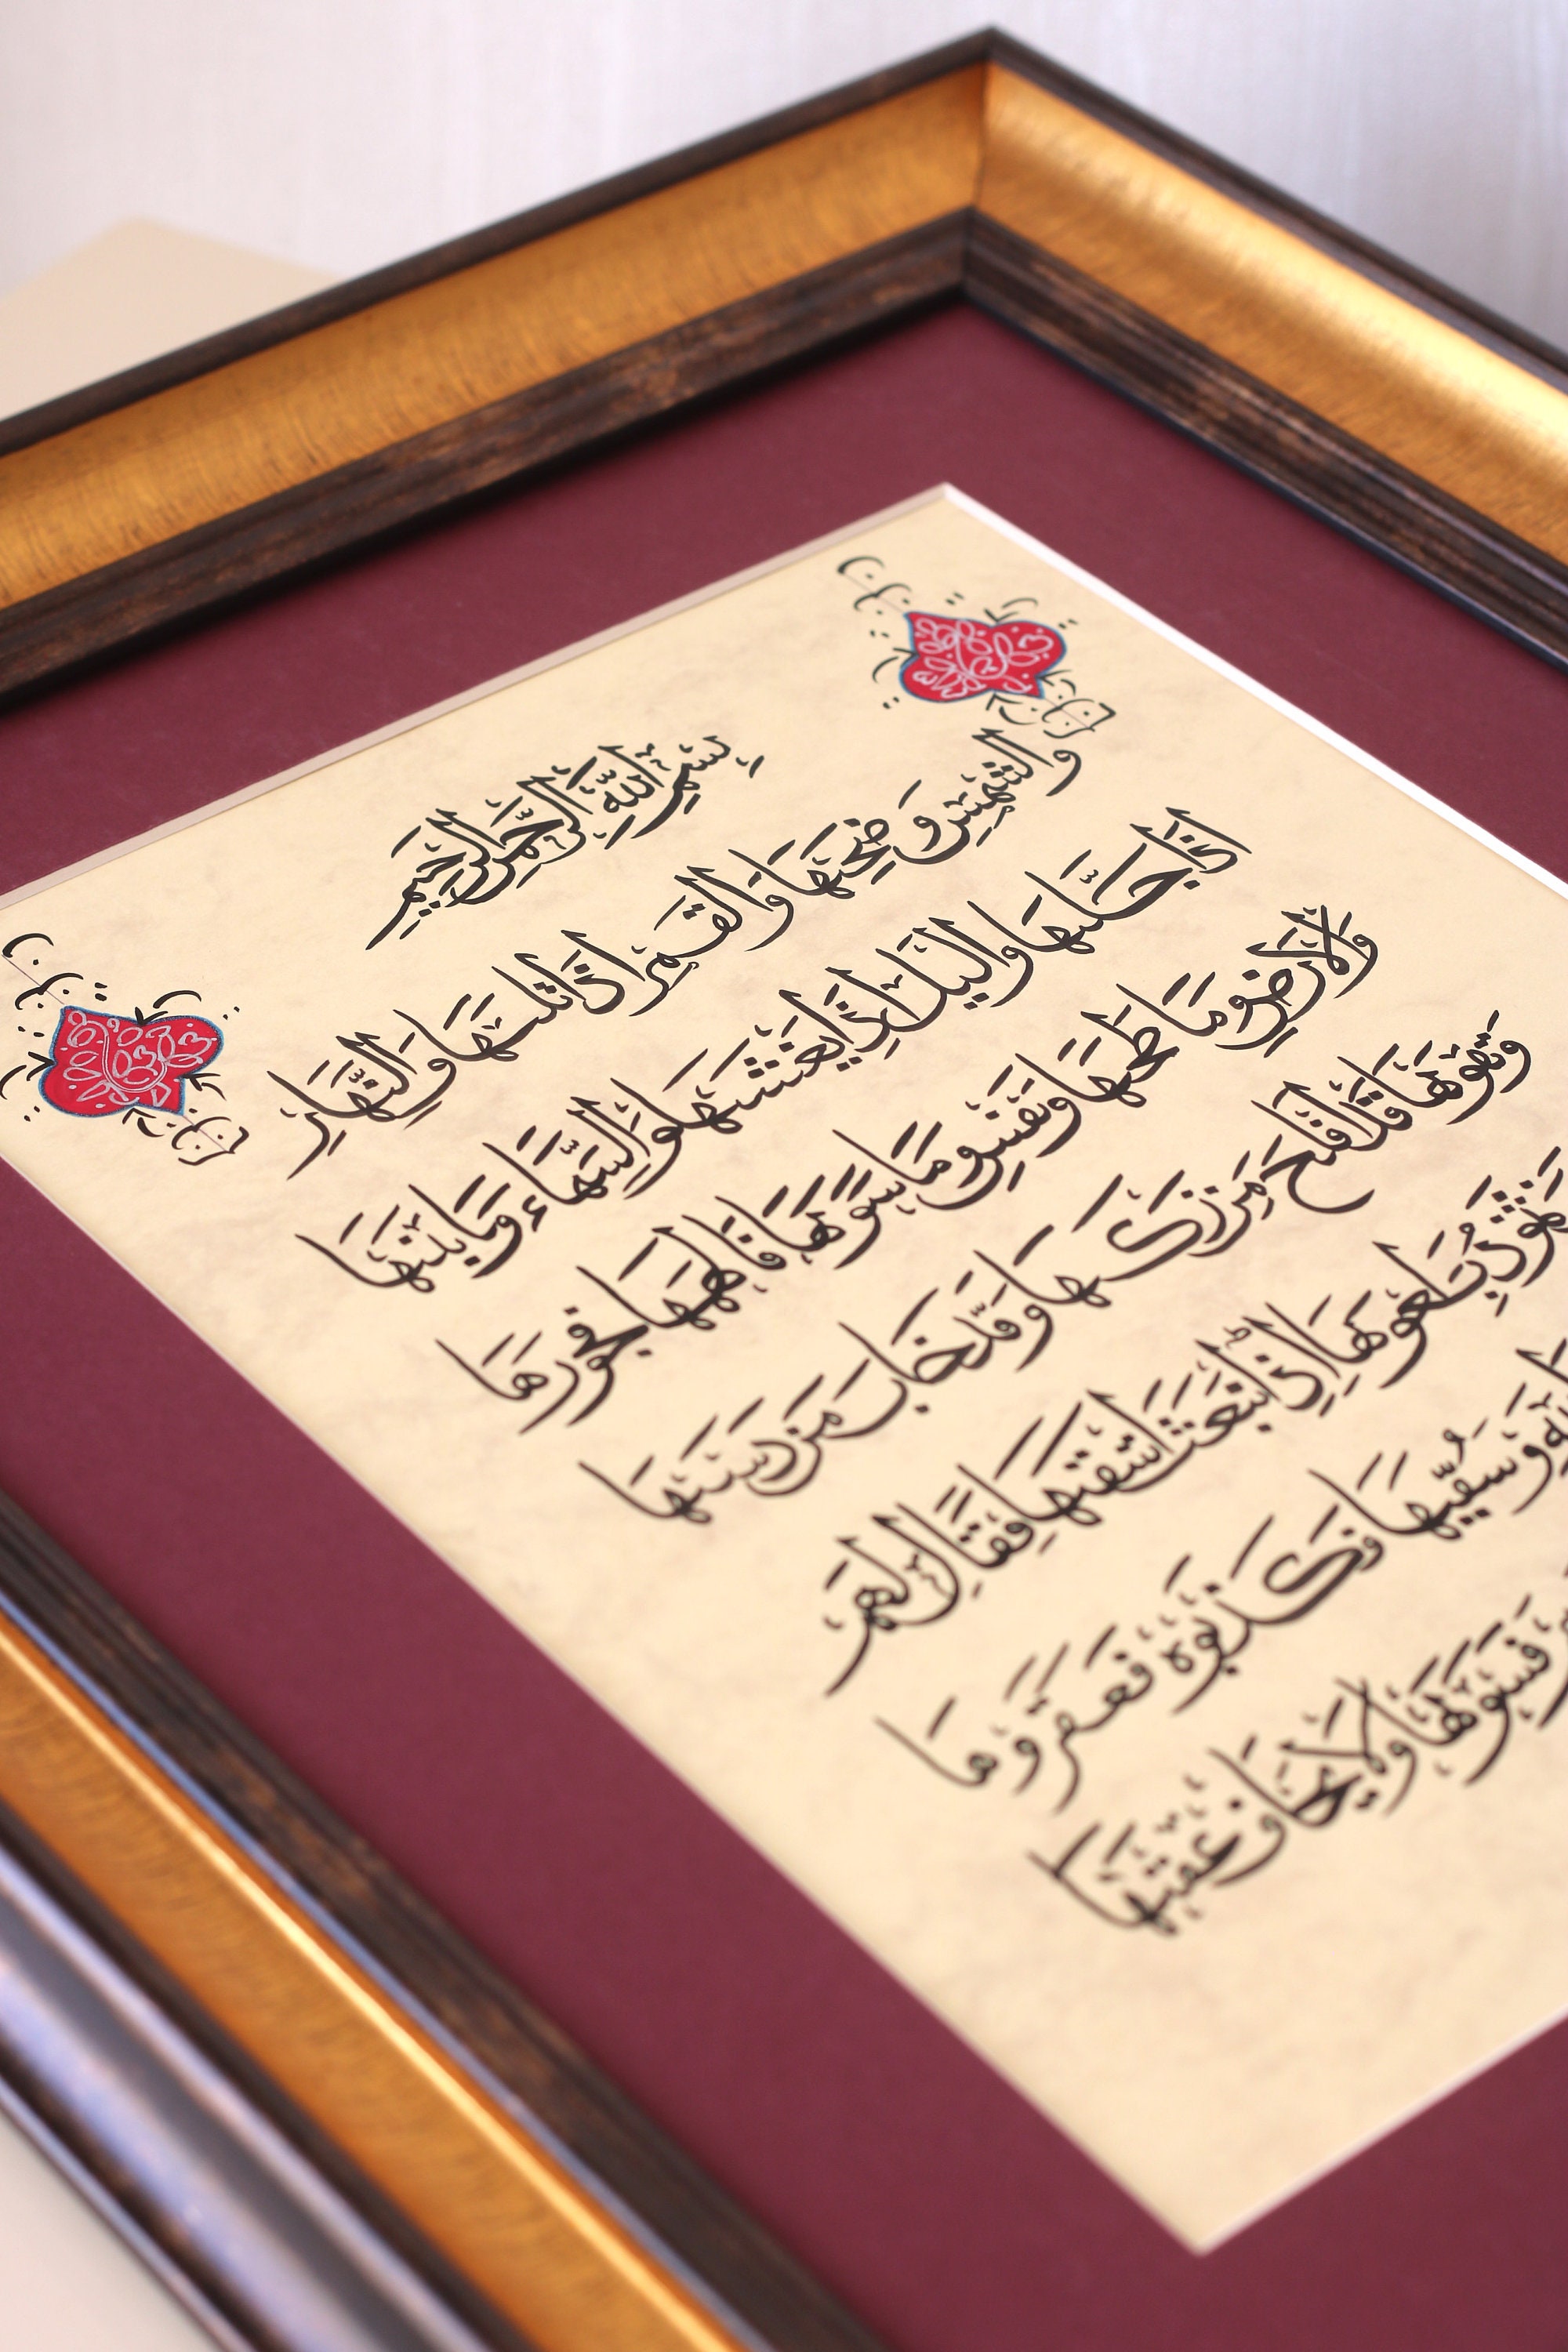 بِسْمِ اللَّهِ الرَّحْمَنِ الرَّحِيمِ
وَالشَّمْسِ وَضُحَىٰهَا وَالْقَمَرِ إِذَا تَلَىٰهَا وَالنَّهَارِ
إِذَا جَلَّىٰهَا وَاللَّيْلِ إِذَا يَغْشَىٰهَا وَالسَّمَاءِ وَمَا بَنَىٰهَا
وَالْأَرْضِ وَمَا طَحَىٰهَا وَنَفْسٍ وَمَا سَوَّىٰهَا فَأَلْهَمَهَا فُجُورَهَا
وَتَقْوَىٰهَا قَدْ أَفْلَحَ مَنْ زَكَّىٰهَا وَقَدْ خَابَ مَنْ دَسَّىٰهَا
ثَمُودُ بِطَغْوَىٰهَا إِذِ انْبَعَثَ أَشْقَىٰهَا فَقَالَ لَهُمْ
وَسُقْيَىٰهَا فَكَذَّبُوهُ فَعَقَرُوهَا
فَسَوَّىٰهَا وَلَا يَخَافُ عُقْبَىٰهَا